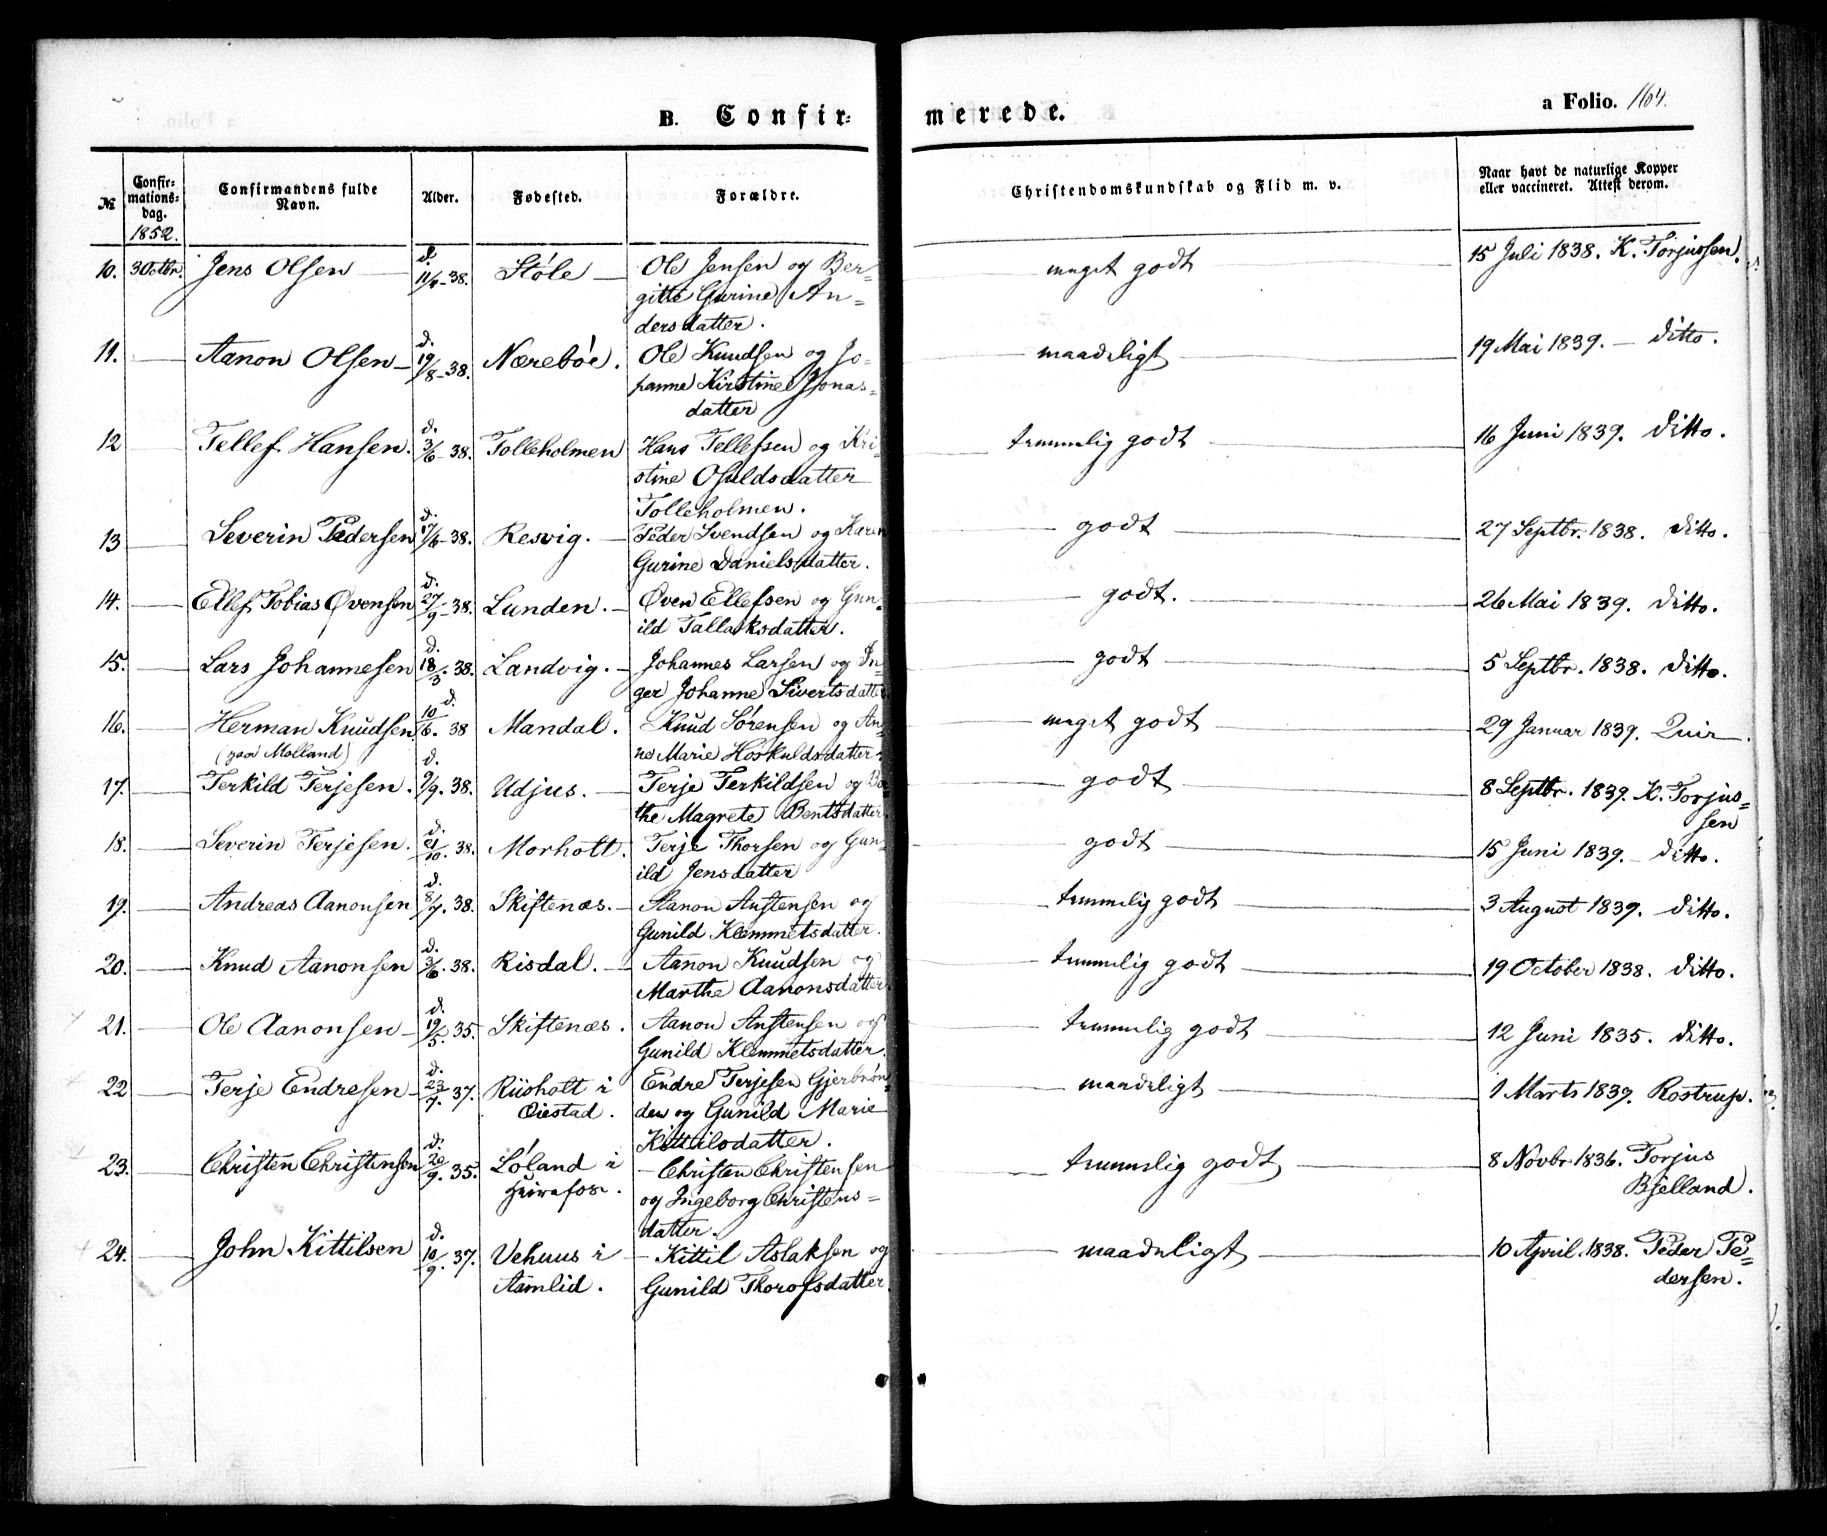 B. Confir= merede. a Folio. 164.
№ Confir=mations=dag. Confirmandens fulde Navn. Alder. Fødested. Forældre. Christendomskundskab og Flid m. v. Naar havt de naturlige Kopper eller vaccineret. Attest derom.
1852.
10. 3 Octbr. Jens Olsen d. 11/4-38. Støle Ole Jensen og Ber= meget godt 15 Juli 1838. K. Torjussen.
gitte Gurine An=
dersdatter.
11. Aanon Olsen d. 19/8-38. Nærebøe. Ole Knudsen og Jo= maadeligt 19 Mai 1839. Ditto.
hanne Kirstine Jonas=
datter
12 Tellef Hansen. d. 3/6 38. Tolleholmen Hans Tellefsen og Kri= temmelig godt 16 Juni 1839. Ditto.
stine Osuldsdatter
Tolleholmen.
13 Severin Pedersen d. 17/6-38. Resvig. Peder Svendsen og Karen godt 27 Septbr. 1838. Ditto.
Gurine Danielsdatter.
14. Ellef Tobias Øvensen d. 27/9-38. Lunden. Øven Ellefsen og Gun= godt. 26 Mai 1839. Ditto.
ild Tallaksdatter.
15. Lars Johannesen d. 18/3. 38. Landvig. Johannes Larsen og In= godt 5 Septbr. 1838. Ditto.
ger Johanne Sivertsdatter
16. Herman Knudsen. d. 10/6. 38 Mandal. Knud Sørensen og An= meget godt 29 Januar 1839. Quir.
(paa Molland) ne Marie Hoskuldsdatter.
17. Terkild Terjesen. d. 9/9. 38. Udjus. Terje Terkildsen og Bor= godt 8 Septbr. 1839. K. Torjus=
the Magrete Bentsdatter. sen
18. Severin Terjesen. d. 21/10. 38. Morholt. Terje Thorsen og Gun= godt 15 Juni 1839. Ditto.
ild Jensdatter
19. Andreas Aanonsen d. 8/7. 38. Skiftenæs. Aanon Anstensen og temmelig godt 3 August 1839. Ditto.
Gunild Klemmetsdatter.
20. Knud Aanonsen d. 3/6. 38. Risdal. Aanon Knudsen og temmelig godt 19 October 1838. Ditto.
Marthe Aanonsdatter
21. Ole Aanonsen d. 19/5. 35 Skiftenæs. Aanon Anstensen og temmelig godt 12 Juni 1835. Ditto.
Gunild Klemmetsdatter.
22 Terje Endresen d. 23/7. 37. Riisholt i Endre Terjesen Gjerbrøn= maadeligt 1 Marts 1839. Rostrup.
Øiestad. den og Gunild Marie
Kittilsdatter.
23. Christen Christensen d. 20/9. 35. Løland i Christen Christensen temmelig godt 8 Novbr 1836. Torjus
og Ingeborg Christens= Bjelland.
datter.
24. John Kittilsen d. 10/9. 37. Vehuus i Kittil Aslaksen og maadeligt 10 April. 1838. Peder Pe=
Aamlid. Gunild Thorofsdatter dersen.